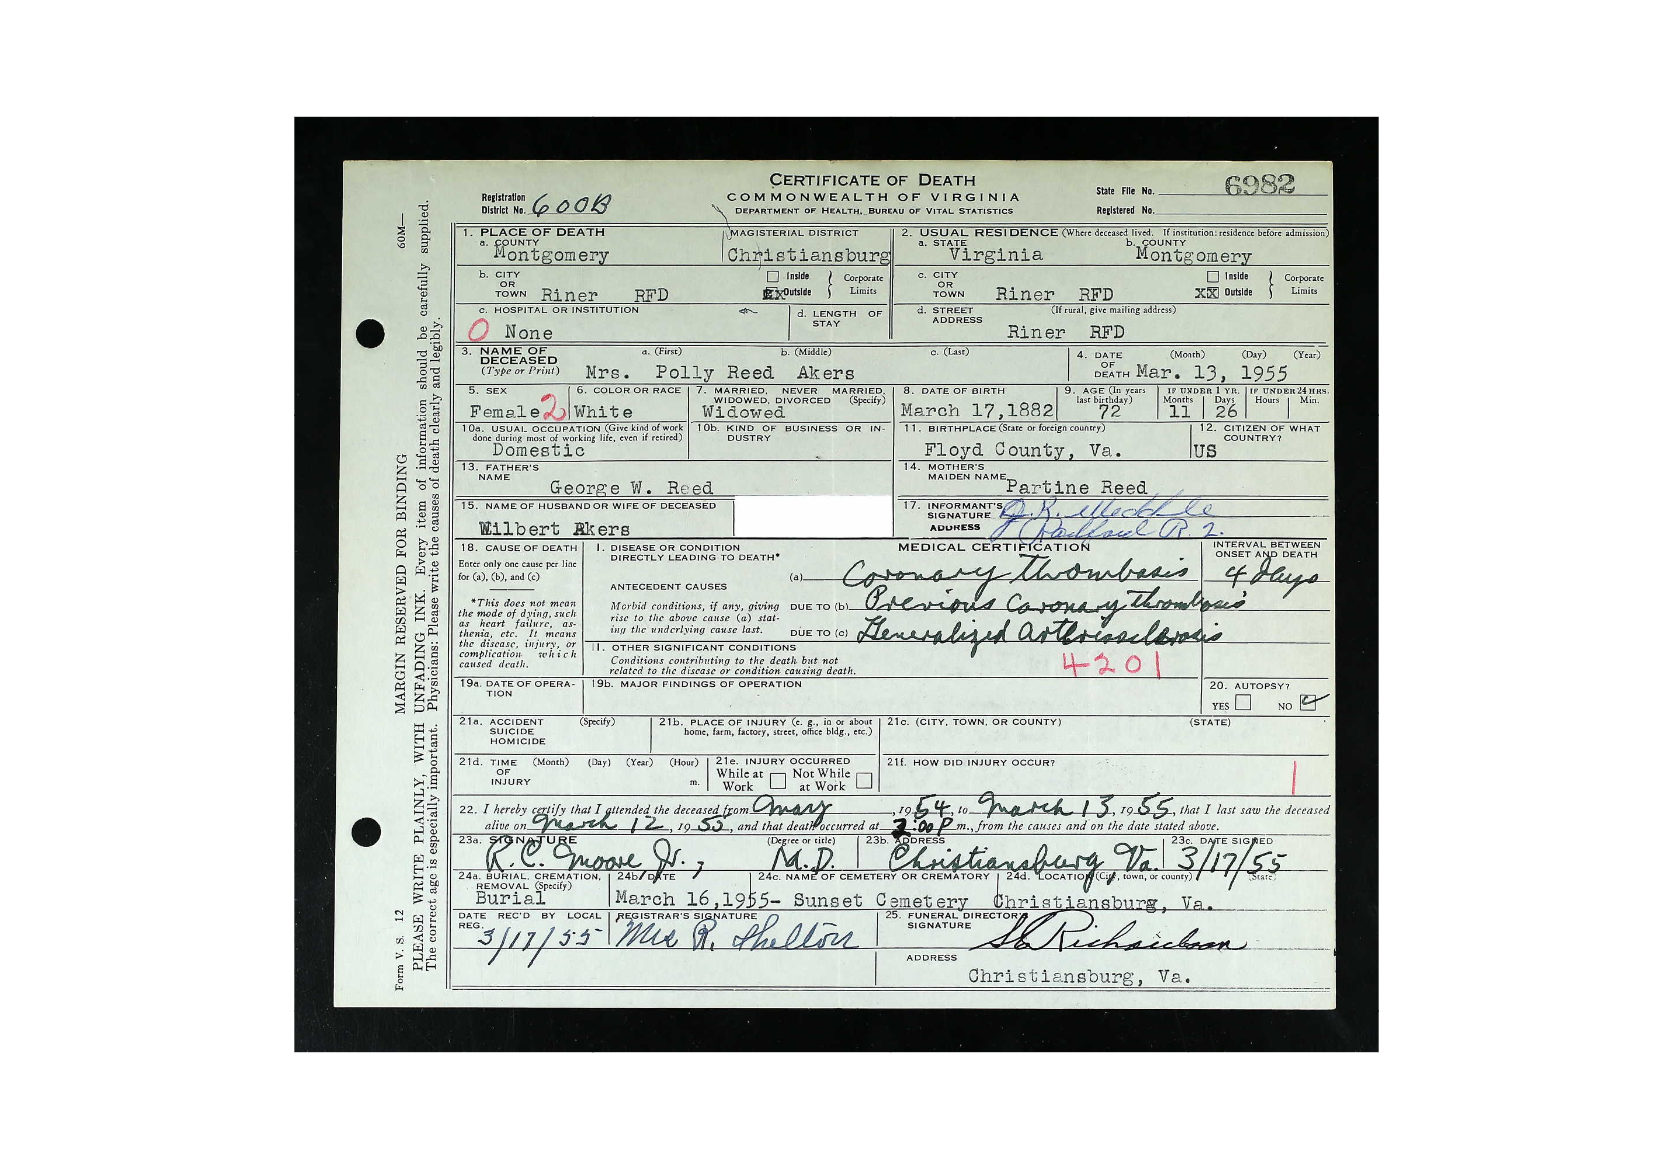 CERTIFICATE OF DEATH
COMMONWEALTH OF VIRGINIA
DEPARTMENT OF HEALTH, BUREAU OF VITAL STATISTICS
Registration District No. 600B
State File No. 6982
Registered No.
1. PLACE OF DEATH
a. COUNTY Montgomery
MAGISTERIAL DISTRICT Christiansburg
2. USUAL RESIDENCE (Where deceased lived. If institution: residence before admission)
a. STATE Virginia
b. COUNTY Montgomery
b. CITY OR TOWN Riner RFD
Inside
XX Outside
Corporate Limits
c. CITY OR TOWN Riner RFD
Inside
XX Outside
Corporate Limits
c. HOSPITAL OR INSTITUTION
0 None
d. LENGTH OF STAY
d. STREET ADDRESS (If rural, give mailing address)
Riner RFD
3. NAME OF DECEASED (Type or Print)
a. (First) b. (Middle) c. (Last)
Mrs. Polly Reed Akers
4. DATE OF DEATH (Month) (Day) (Year)
Mar. 13, 1955
5. SEX
Female 2
6. COLOR OR RACE
White
7. MARRIED, NEVER MARRIED, WIDOWED, DIVORCED (Specify)
Widowed
8. DATE OF BIRTH
March 17,1882
9. AGE (In years last birthday)
72
IF UNDER 1 YR. Months Days
11 26
IF UNDER 24 HRS. Hours Min.
10a. USUAL OCCUPATION (Give kind of work done during most of working life, even if retired)
Domestic
10b. KIND OF BUSINESS OR INDUSTRY
11. BIRTHPLACE (State or foreign country)
Floyd County, Va.
12. CITIZEN OF WHAT COUNTRY?
US
13. FATHER'S NAME
George W. Reed
14. MOTHER'S MAIDEN NAME
Partine Reed
15. NAME OF HUSBAND OR WIFE OF DECEASED
Wilbert Akers
17. INFORMANT'S SIGNATURE
ADDRESS Radford R. 2.
18. CAUSE OF DEATH
Enter only one cause per line for (a), (b), and (c)
*This does not mean the mode of dying, such as heart failure, asthenia, etc. It means the disease, injury, or complication which caused death.
MEDICAL CERTIFICATION
INTERVAL BETWEEN ONSET AND DEATH
I. DISEASE OR CONDITION DIRECTLY LEADING TO DEATH*
(a) Coronary thrombosis 4 days
ANTECEDENT CAUSES
Morbid conditions, if any, giving rise to the above cause (a) stating the underlying cause last.
DUE TO (b) Previous Coronary thrombosis
DUE TO (c) Generalized Arteriosclerosis
II. OTHER SIGNIFICANT CONDITIONS
Conditions contributing to the death but not related to the disease or condition causing death.
4201
19a. DATE OF OPERATION
19b. MAJOR FINDINGS OF OPERATION
20. AUTOPSY?
YES NO
21a. ACCIDENT SUICIDE HOMICIDE (Specify)
21b. PLACE OF INJURY (e. g., in or about home, farm, factory, street, office bldg., etc.)
21c. (CITY, TOWN, OR COUNTY) (STATE)
21d. TIME OF INJURY (Month) (Day) (Year) (Hour) m.
21e. INJURY OCCURRED
While at Work Not While at Work
21f. HOW DID INJURY OCCUR?
1
22. I hereby certify that I attended the deceased from May, 1954, to March 13, 1955, that I last saw the deceased
alive on March 12, 1955, and that death occurred at 2:00 P m., from the causes and on the date stated above.
23a. SIGNATURE (Degree or title)
R.C. Moore Jr., M.D.
23b. ADDRESS
Christiansburg Va.
23c. DATE SIGNED
3/17/55
24a. BURIAL, CREMATION, REMOVAL (Specify)
Burial
24b. DATE
March 16,1955-
24c. NAME OF CEMETERY OR CREMATORY
Sunset Cemetery
24d. LOCATION (City, town, or county) (State)
Christiansburg, Va.
DATE REC'D BY LOCAL REG.
3/17/55
REGISTRAR'S SIGNATURE
Mrs R. Shelton
25. FUNERAL DIRECTOR SIGNATURE
Richardson
ADDRESS
Christiansburg, Va.
Form V. S. 12
MARGIN RESERVED FOR BINDING
60M—
PLEASE WRITE PLAINLY, WITH UNFADING INK. Every item of information should be carefully supplied.
The correct age is especially important. Physicians: Please write the causes of death clearly and legibly.